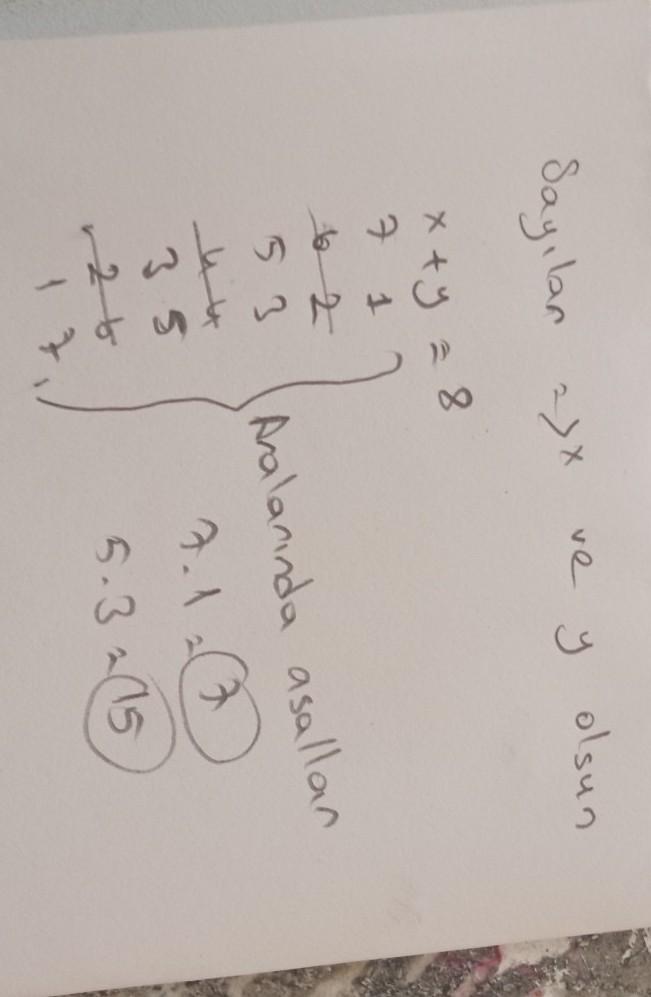 Sayılar => x ve y olsun
x + y = 8
7 1
6 2
5 3
4 4
3 5
2 6
1 7
Aralarında asallar
7.1 = 7
5.3 = 15